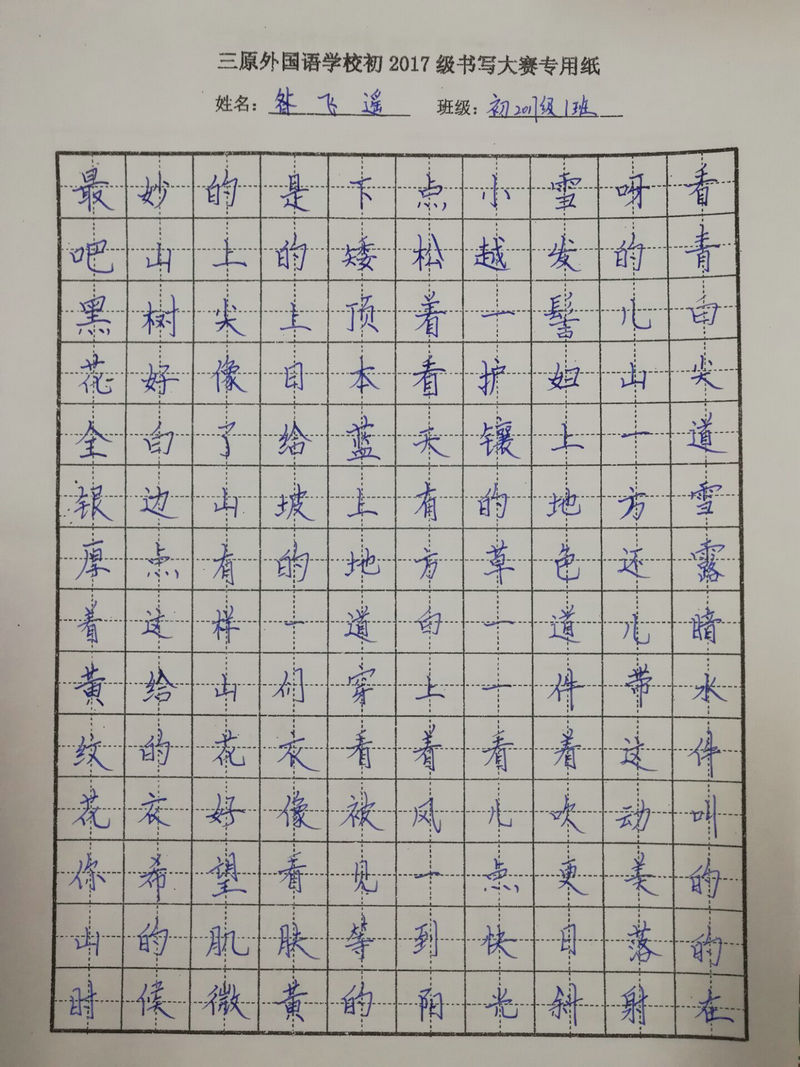 三原外国语学校初2017级书写大赛专用纸
姓名：昝飞遥 班级：初2017级1班
最妙的是下点小雪呀看
吧山上的矮松越发的青
黑树尖上顶着一髻儿白
花好像日本看护妇山尖
全白了给蓝天镶上一道
银边山坡上有的地方雪
厚点有的地方草色还露
着这样一道白一道儿暗
黄给山们穿上一件带水
纹的花衣看着看着这件
花衣好像被风儿吹动叫
你希望看见一点更美的
山的肌肤等到快日落的
时候微黄的阳光斜射在